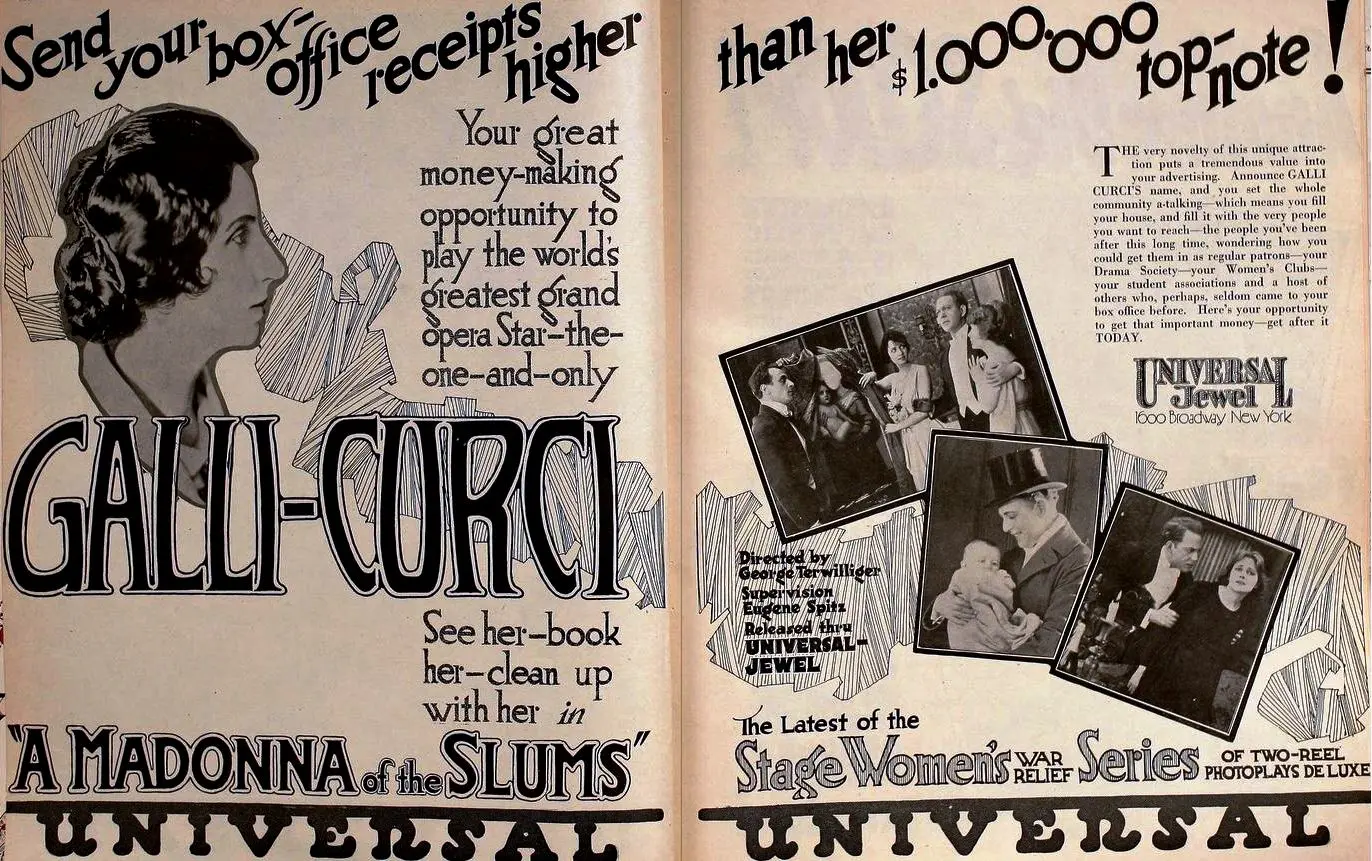 Send your box-office receipts higher
Your great
money-making
opportunity to
play the world's
greatest grand
opera Star—the—
one—and—only
GALLI-CURCI
See her—book
her—clean up
with her in
"A MADONNA of the SLUMS"
UNIVERSAL
than her $1.000.000 top-note!
THE very novelty of this unique attrac-
tion puts a tremendous value into
your advertising. Announce GALLI
CURCI'S name, and you set the whole
community a-talking—which means you fill
your house, and fill it with the very people
you want to reach—the people you've been
after this long time, wondering how you
could get them in as regular patrons—your
Drama Society—your Women's Clubs—
your student associations and a host of
others who, perhaps, seldom came to your
box office before. Here's your opportunity
to get that important money—get after it
TODAY.
UNIVERSAL
Jewel
1600 Broadway New York
Directed by
George Terwilliger
Supervision
Eugene Spitz
Released thru
UNIVERSAL-
JEWEL
The Latest of the
Stage Women's WAR RELIEF Series OF TWO-REEL PHOTOPLAYS DE LUXE
UNIVERSAL